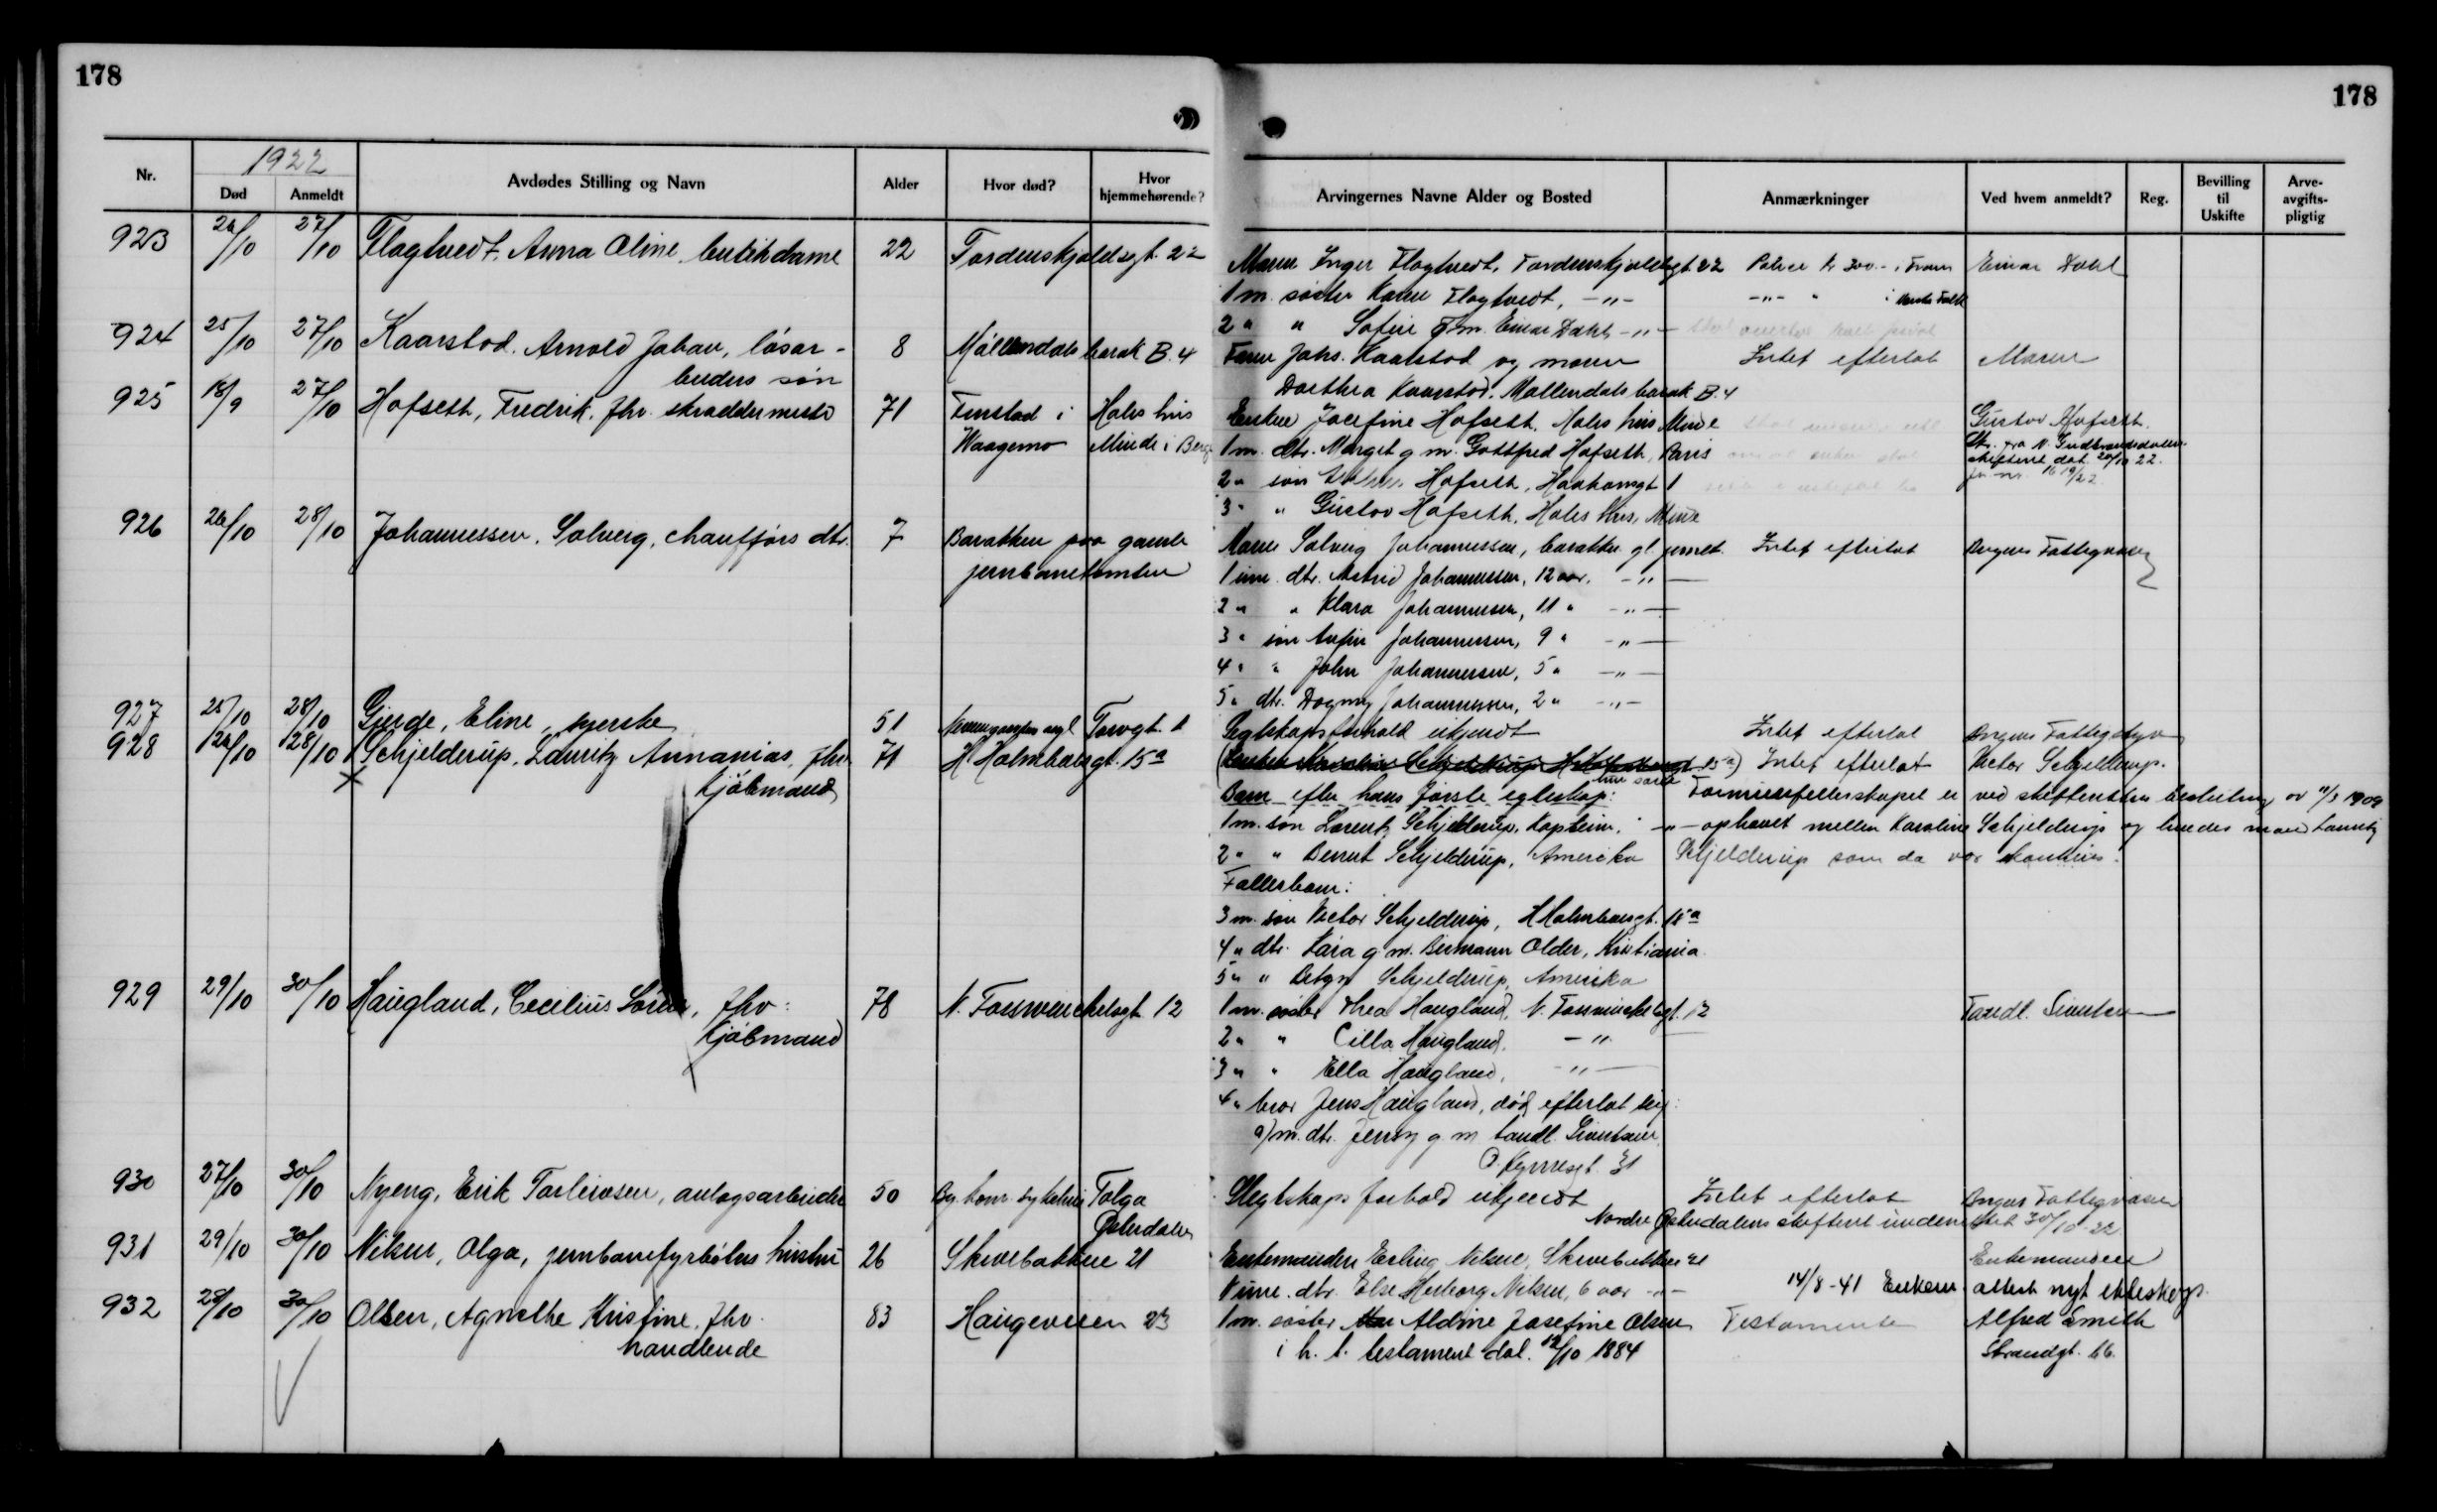 178
178
1922
Nr.
Død
Anmeldt
Avdødes Stilling og Navn
Alder
Hvor død?
Hvor hjemmehørende?
Arvingernes Navne Alder og Bosted
Anmærkninger
Ved hvem anmeldt?
Reg.
Bevilling til Uskifte
Arve-avgifts-pligtig
923 27/10 Flagtvedt, Anna Oline, butikdame 22 Tordenskjoldsgt. 22
Moren Inger Flagtvedt, Tordenskjoldsgt. 22 Police kr 300.- i Fram Einar Dahl
1 m. søster Karen Flagtvedt, -"- -"- " i
2 " " Sofie g. m. Einar Dahl -"-
924 25/10 27/10 Kaarstad, Arnold Johan, løsar- 8 Møllendals barak B. 4
beiders søn
Faren Johs. Kaarstad og moren Intet efterlat Moren
Dorthea Kaarstad, Møllendals barak B. 4
925 18/9 27/10 Hofseth, Fredrik, fhv. skræddermester 71 Finstad i Hales hus
Waagemo Minde i Berg
Enken Josefine Hofseth, Hales hus Minde Gustav Hofseth.
1 m. dtr. Margit g m. Gottfred Hofseth, Paris Skr. fra N. Gudbrandsdalens
skifterett dat. 20/10 22.
2 " søn Hofseth, Haakonsgt 1
3 " " Gustav Hofseth, Hales hus, Minde
926 26/10 28/10 Johannessen, Solveig, chaufførs dtr. 7 Barakken paa gamle
jernbanetomten
Moren Solveig Johannessen, barakken gl. jernbt. Intet efterlat Bergens Fattigvæsen
1 um. dtr. Astrid Johannessen, 12 aar, -"-
2 " " Klara Johannessen, 11 " -"-
3 " søn Anfin Johannessen, 9 " -"-
4 " " John Johannessen, 5 " -"-
5 " dtr. Dagny Johannessen, 2 " -"-
927 25/10 28/10 Gjerde, Eline, syerske 51 Torvgt. 1
Slegtskapsforhold ukjendt Intet efterlat Bergens Fattigstyre
928 28/10 Schjelderup, Lauritz Annanias, fhv. 71 H Holmboesgt. 15a
kjøbmand
(Enken Karoline Schjelderup H Holmboesgt 15a) Intet efterlat Victor Schjelderup.
Barn efter hans første egteskap: Formuesfellesskapet er ved skifterettens beslutning av 11/3 1909
1 m. søn Lorentz Schjelderup, Kaptein, -"- ophævet mellem Karoline Schjelderup og hendes mand Lauritz
2 " " Bernt Schjelderup, Amerika Schjelderup som da var konkurs.
Fællesbarn:
3 m. søn Victor Schjelderup, H Holmboesgt. 15a
4 " dtr. g. m. Birmann Older, Kristiania
5 " " Schjelderup, Amerika
929 29/10 30/10 Haugland, Cecilius Sören, fhv. 78 N. Fosswinckelsgt. 12
Kjøbmand
1 m. søster Thea Haugland, N. Fosswinckelsgt. 12 Tandl. Sivertsen
2 " " Cilla Haugland, -"-
3 " " Ella Haugland, -"-
4 " bror Jens Haugland, død efterlat sig:
a) m. dtr. Jenny g. m tandl. Sivertsen,
O. Kyrresgt. 31
930 27/10 30/10 Nyeng, Erik Torleivsen, anlægsarbeider 50 Tolga
Østerdalen
Slegtskapsforhold ukjendt Intet efterlat Bergens Fattigvæsen
Nordre Østerdalens skifterett underrettet 30/10-22.
931 29/10 30/10 Nilsen, Olga, jernbanefyrbøters hustru 26 Skivebakken 21
Enkemanden Erling Nilsen, Skivebakken 21 Enkemanden
1 um. dtr. Else Herborg Nilsen, 6 aar -"- 14/8-41 Enkem. attest nyt ekteskap.
932 28/10 30/10 Olsen, Agnethe Kristine, fhv. 83 Haugeveien 23
handlende
1 m. søster Aldine Josefine Olsen Testamente Alfred Smith
i h. t. testament dat. 12/10 1884 Strandgt. 66.